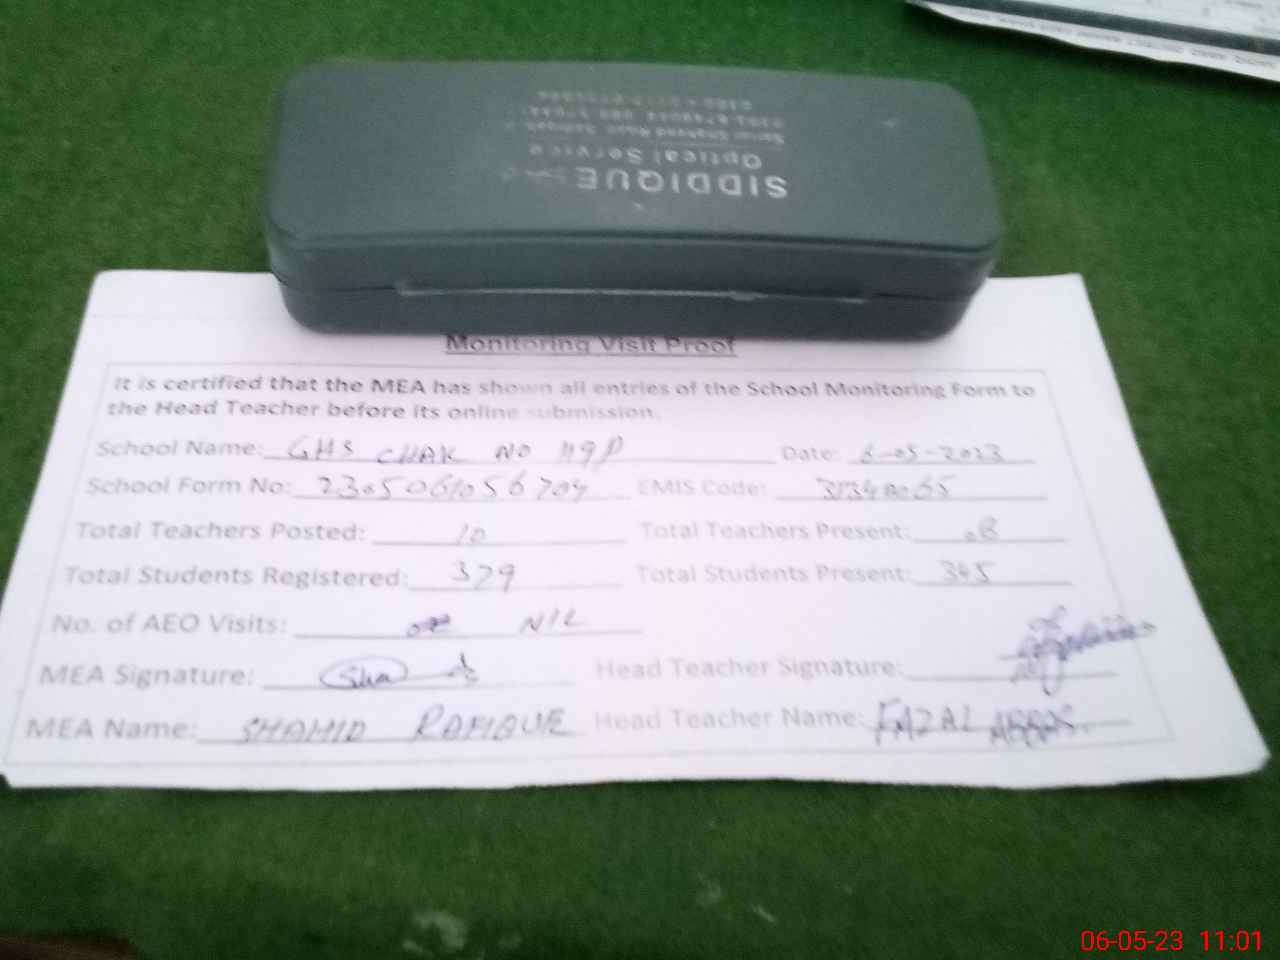 SIDDIQUE
Optical Service
Monitoring Visit Proof
It is certified that the MEA has shown all entries of the School Monitoring Form to
the Head Teacher before its online submission.
School Name: GHS CHAK NO 119P Date: 6-05-2023
School Form No: 2305061056704 EMIS Code:
Total Teachers Posted: 10 Total Teachers Present: 08
Total Students Registered: 379 Total Students Present: 345
No. of AEO Visits: NIL
MEA Signature: Head Teacher Signature:
MEA Name: SHAHID RAFIQUE Head Teacher Name: FAZAL ABBAS.
06-05-23 11:01